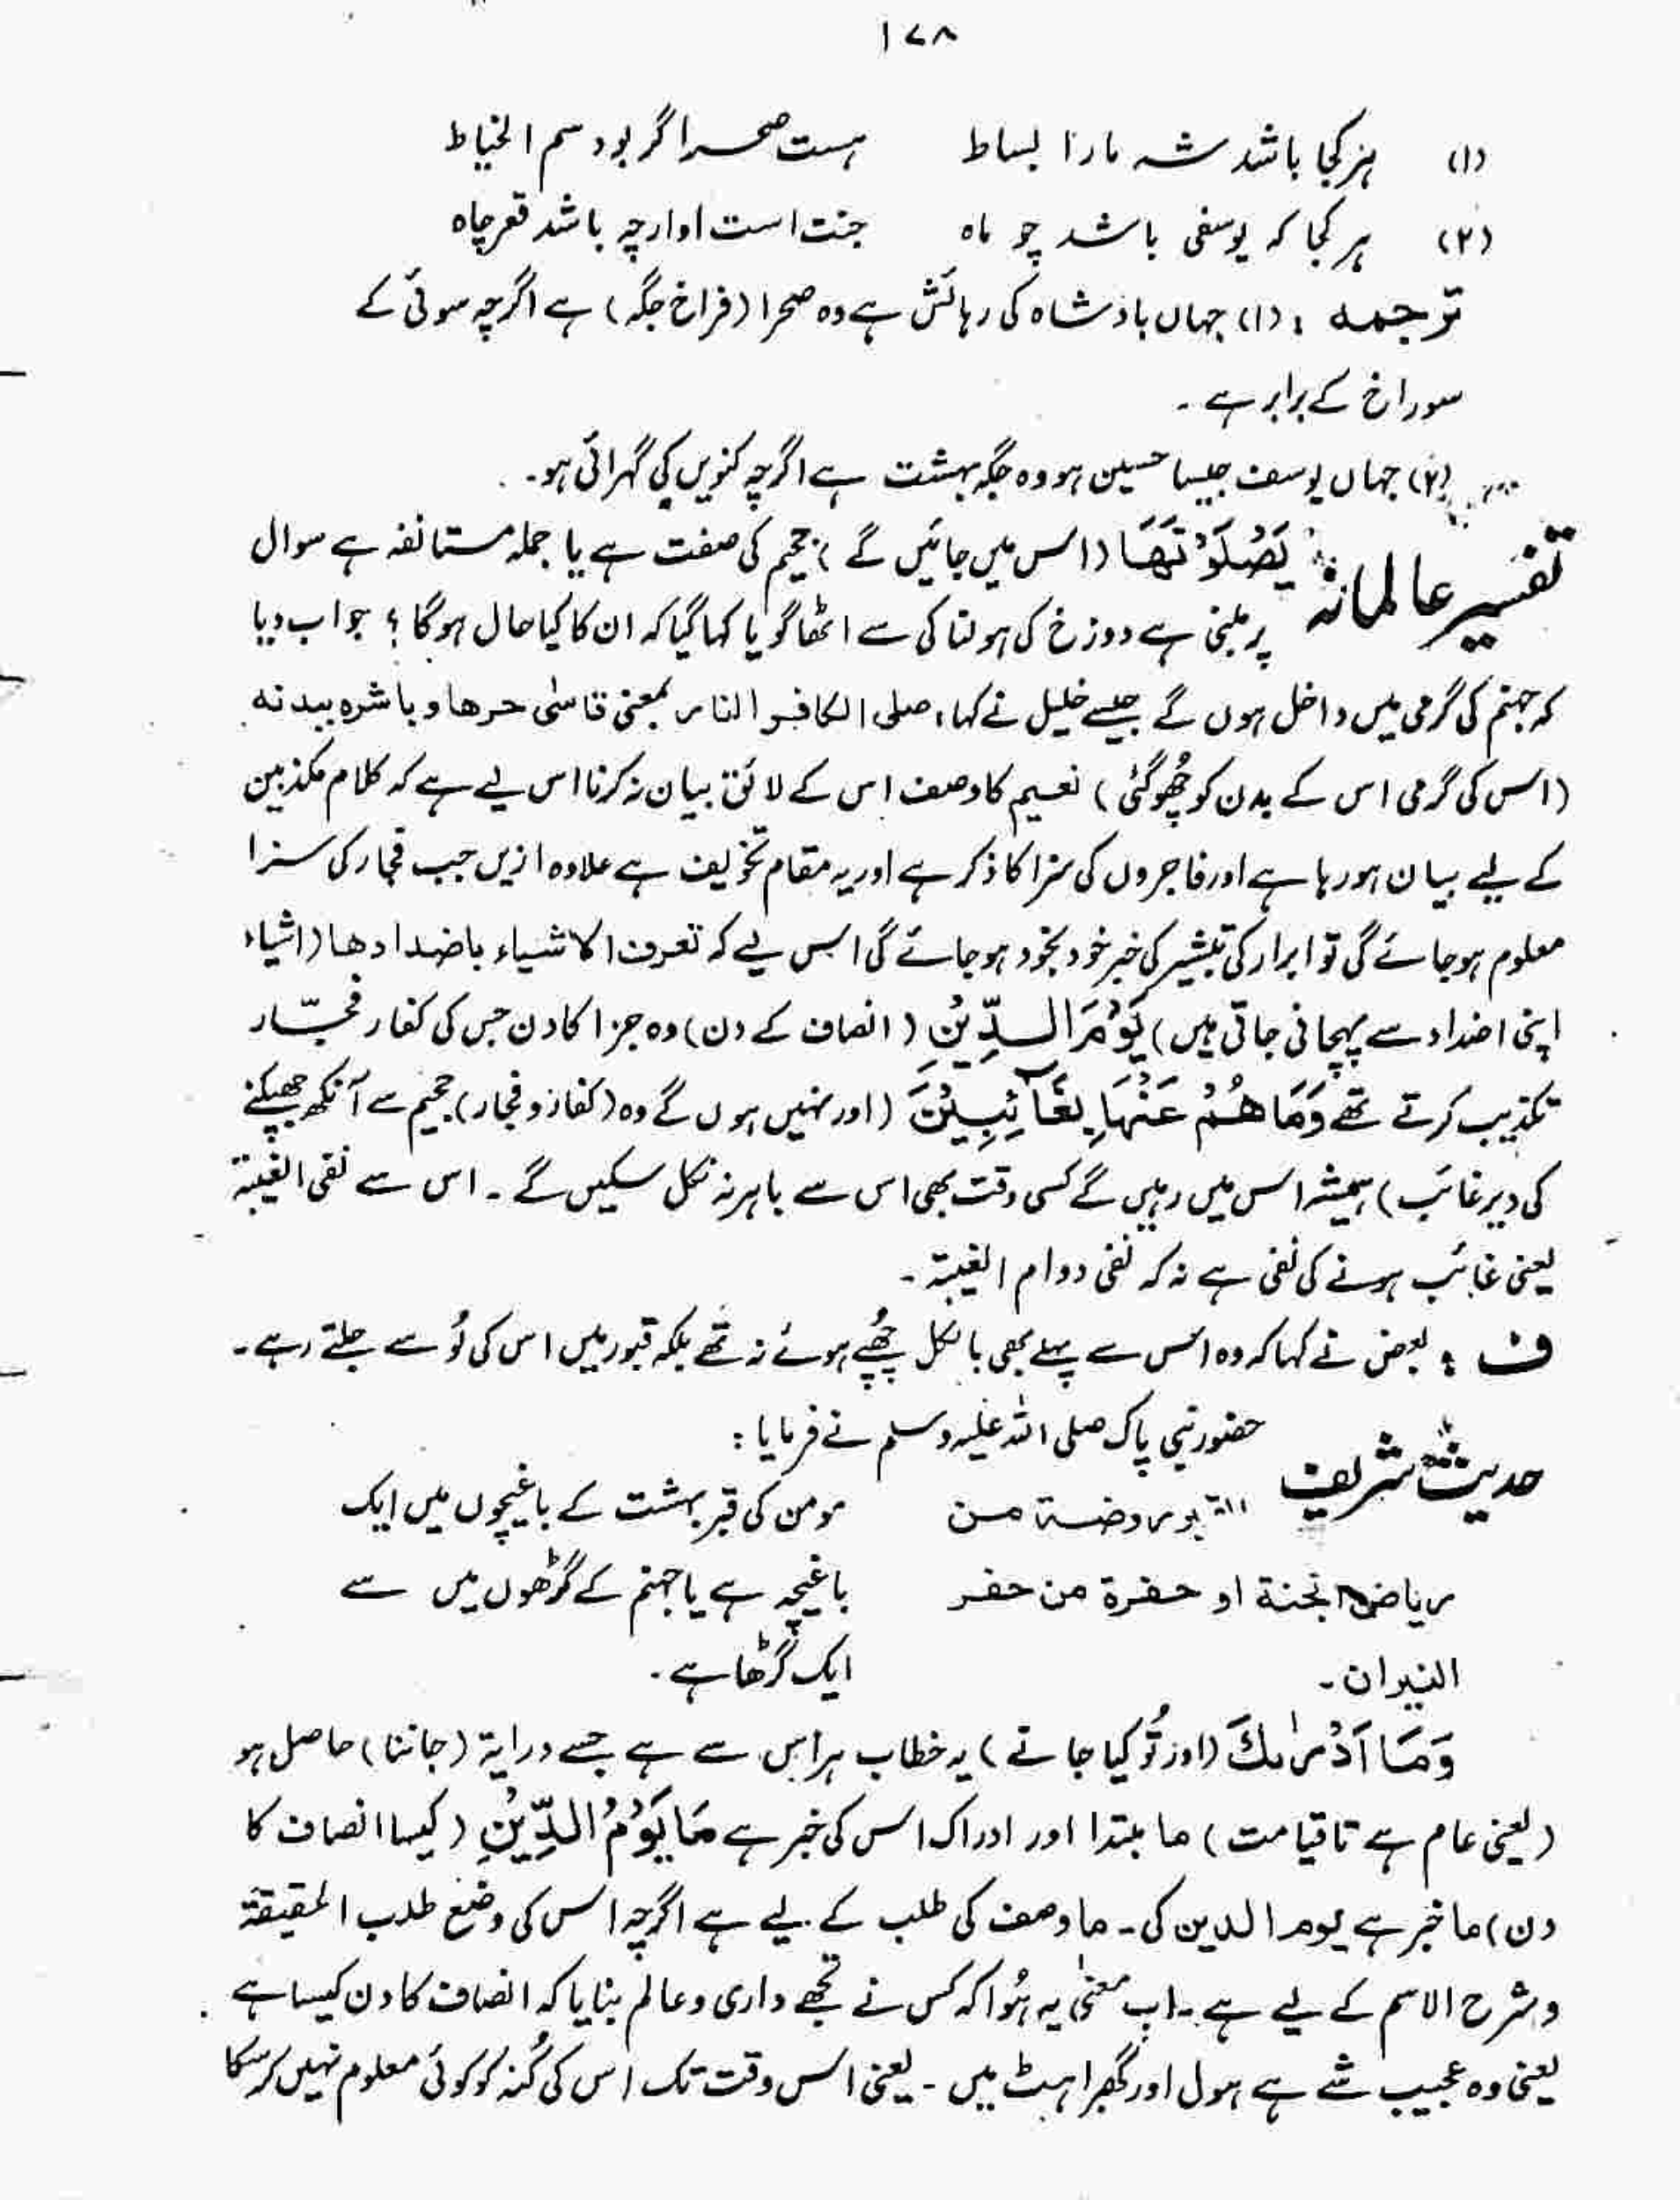 ۱۷۸
(۱) ہر کجا باشد شہ مارا بساط ہست صحرا گر بود سم الخیاط
(۲) ہر کجا کہ یوسفی باشد چو ماہ جنت است اوارچہ باشد قعر چاہ
ترجمہ : (۱) جہاں بادشاہ کی رہائش ہے وہ صحرا (فراخ جگہ) ہے اگرچہ سوئی کے
سوراخ کے برابر ہے ۔
(۲) جہاں یوسف جیسا حسین ہو وہ جگہ بہشت ہے اگرچہ کنویں کی گہرائی ہو۔
تفسیر عالمانہ یَصْلَوْنَهَا (اس میں جائیں گے) جحیم کی صفت ہے یا جملہ مستانفہ ہے سوال
پر مبنی ہے دوزخ کی ہولناکی سے اٹھا گویا کہا گیا کہ ان کا کیا حال ہوگا ؟ جواب دیا
کہ جہنم کی گرمی میں داخل ہوں گے جیسے خلیل نے کہا، صلی الکافر النار بمعنی قاسٰی حرھا و باشرہ ببدنہ
(اس کی گرمی اس کے بدن کو چُھو گئی) نعیم کا وصف اس کے لائق بیان نہ کرنا اس لیے ہے کہ کلام مکذبین
کے لیے بیان ہو رہا ہے اور فاجروں کی سزا کا ذکر ہے اور یہ مقام تخویف ہے علاوہ ازیں جب فجار کی سزا
معلوم ہو جائے گی تو ابرار کی تبشیر کی خبر خود بخود ہو جائے گی اس لیے کہ تعرف الاشیاء باضدادھا (اشیاء
اپنی اضداد سے پہچانی جاتی ہیں) یَوْمَ الدِّیْنِ (انصاف کے دن) وہ جزا کا دن جس کی کفار فجّار
تکذیب کرتے تھے وَمَا هُمْ عَنْهَا بِغَآئِبِیْنَ (اور نہیں ہوں گے وہ (کفار و فجار) جحیم سے آنکھ جھپکنے
کی دیر غائب) ہمیشہ اس میں رہیں گے کسی وقت بھی اس سے باہر نہ نکل سکیں گے ۔ اس سے نفی الغیبۃ
یعنی غائب ہونے کی نفی ہے نہ کہ نفی دوام الغیبۃ ۔
ف : بعض نے کہا کہ وہ اس سے پہلے بھی بالکل چُھپے ہوئے نہ تھے بلکہ قبور میں اس کی لُو سے جلتے رہے ۔
حدیث شریف حضور نبی پاک صلی اللہ علیہ وسلم نے فرمایا :
القبور روضۃ من مومن کی قبر بہشت کے باغیچوں میں ایک
ریاض الجنۃ او حفرۃ من حفر باغیچہ ہے یا جہنم کے گڑھوں میں سے
النیران ۔ ایک گڑھا ہے ۔
وَمَا اَدْرٰىكَ (اور تُو کیا جانے) یہ خطاب ہر اس سے ہے جسے درایۃ (جاننا) حاصل ہو
(یعنی عام ہے تا قیامت) ما مبتدا اور ادراک اس کی خبر ہے مَا یَوْمُ الدِّیْنِ (کیسا انصاف کا
دن) ما خبر ہے یوم الدین کی ۔ ما وصف کی طلب کے لیے ہے اگرچہ اس کی وضع طلب الحقیقۃ
و شرح الاسم کے لیے ہے ۔ اب معنیٰ یہ ہُوا کہ کس نے تجھے داری و عالم بنایا کہ انصاف کا دن کیسا ہے
یعنی وہ عجیب شے ہے ہول اور گھبراہٹ میں ۔ یعنی اس وقت تک اس کی کُنہ کو کوئی معلوم نہیں کر سکا